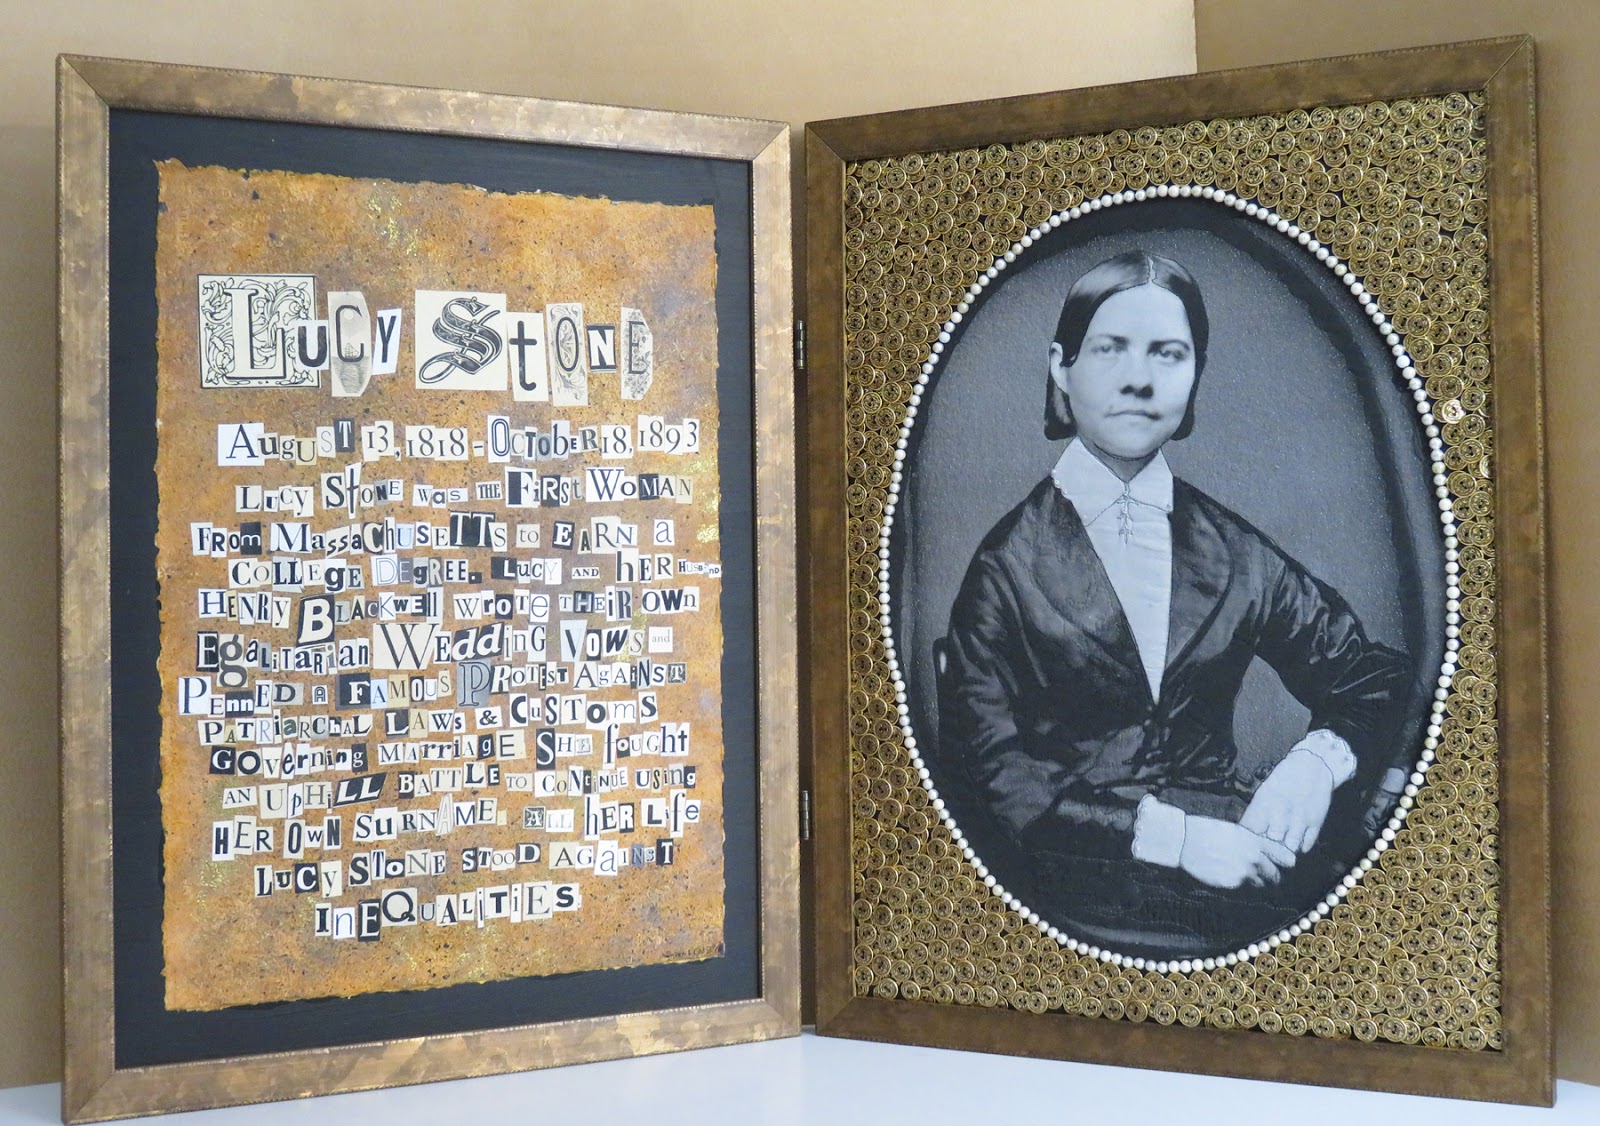 Lucy Stone
August 13, 1818 - October 18, 1893
Lucy Stone was the First Woman
From Massachusetts to Earn a
College Degree. Lucy and her Husband
Henry Blackwell wrote their own
Egalitarian Wedding Vows and
Penned a Famous Protest Against
Patriarchal Laws & Customs
Governing Marriage She fought
an uphill battle to continue using
her own surname. All her life
Lucy Stone stood against
inequalities